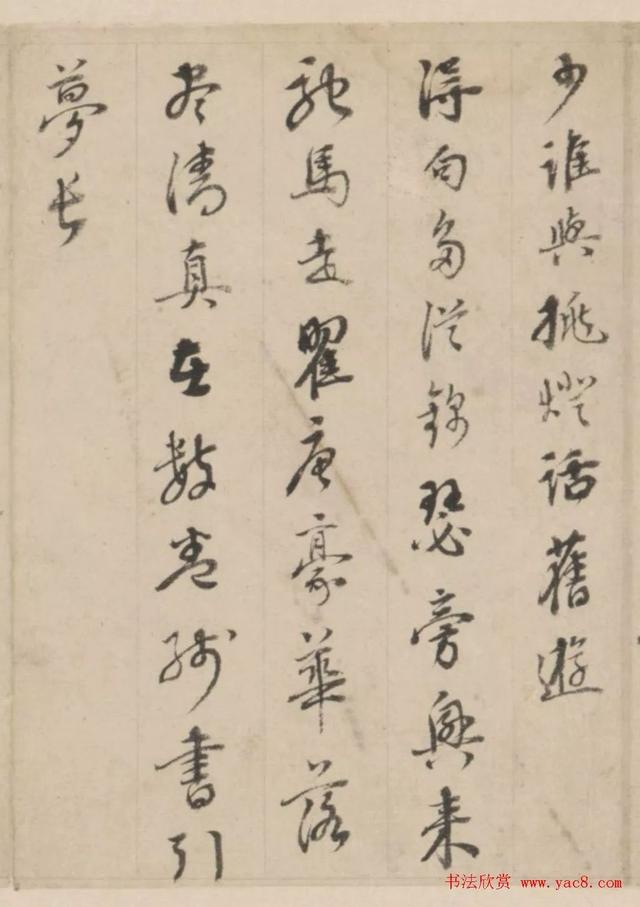 少誰與挑燈話舊遊
得句多從錦瑟旁興來
馳馬瞿唐豪華落
盡清真在數卷殘書引
夢長
书法欣赏 www.yac8.com